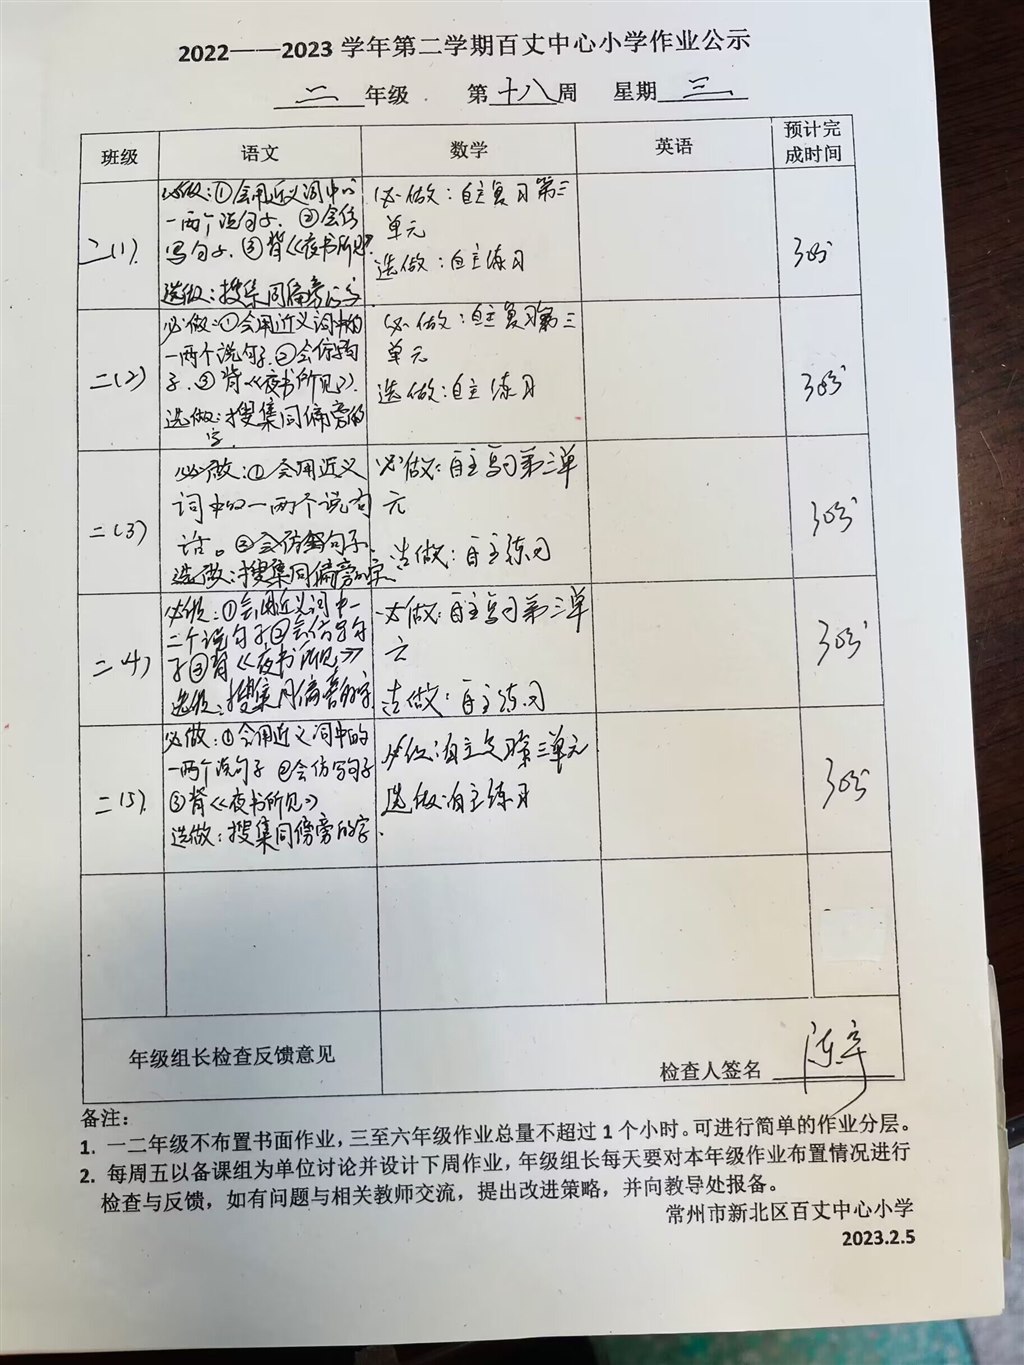 2022——2023 学年第二学期百丈中心小学作业公示
二 年级 第 十八 周 星期 三
班级 语文 数学 英语 预计完
成时间
二(1)
必做:①会用近义词中的
一两个说句子. ②会仿
写句子.③背《夜书所见》
选做:搜集同偏旁的字
必做:自主复习第三
单元
选做:自主练习
30分
二(2)
必做:①会用近义词中的
一两个说句子.②会仿写句
子.③背《夜书所见》.
选做:搜集同偏旁的
字.
必做:自主复习第三
单元
选做:自主练习
30分
二(3)
必做:①会用近义
词中的一两个说句
话。②会仿写句子.
选做:搜集同偏旁的字
必做:自主复习第三单
元
选做:自主练习
30分
二(4)
必做:①会用近义词中一
二个说句子②会仿写句
子③背《夜书所见》
选做:搜集同偏旁的字
必做:自主复习第三单
元
选做:自主练习
30分
二(5)
必做:①会用近义词中的
一两个说句子 ②会仿写句子
③背《夜书所见》
选做:搜集同偏旁的字.
必做:自主复习第三单元
选做:自主练习
30分
年级组长检查反馈意见
检查人签名
备注:
1. 一二年级不布置书面作业,三至六年级作业总量不超过 1 个小时。可进行简单的作业分层。
2. 每周五以备课组为单位讨论并设计下周作业,年级组长每天要对本年级作业布置情况进行
检查与反馈,如有问题与相关教师交流,提出改进策略,并向教导处报备。
常州市新北区百丈中心小学
2023.2.5